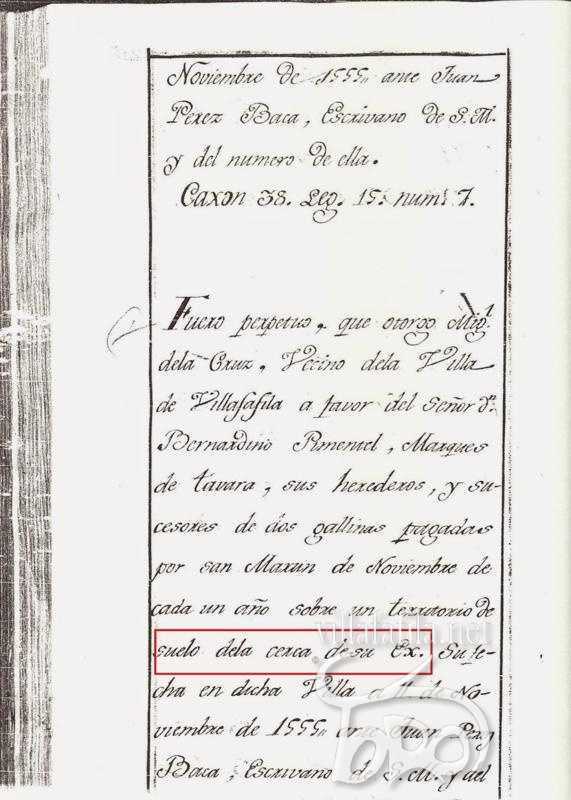 Noviembre de 1555,, ante Juan
Perez Baca, Escrivano de S.M.
y del numero de ella.
Caxon 38. Leg. 15. num. 7.
Fuero perpetuo, que otorgo Mig.l
dela Cruz, Vecino dela Villa
de Villafafila a favor del Señor Dn.
Bernardino Pimentel, Marques
de tavara, sus herederos, y su-
cesores de dos gallinas pagadas
por san Martin de Noviembre de
cada un año sobre un territorio de
suelo dela cerca de su Ex. Su fe-
cha en dicha Villa a 11. de No-
viembre de 1555,, ante Juan Perez
Baca, Escrivano de S.M. y del
villafafila.net